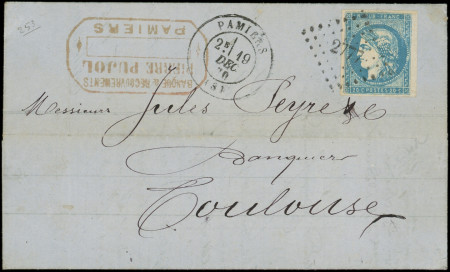 BANQUE & RECOUVREMENTS
PIERRE PUJOL
PAMIERS
PAMIERS
2E 19
DEC
70
REPUB. FRANC.
Messieurs Jules Seyre
Banquier
Toulouse